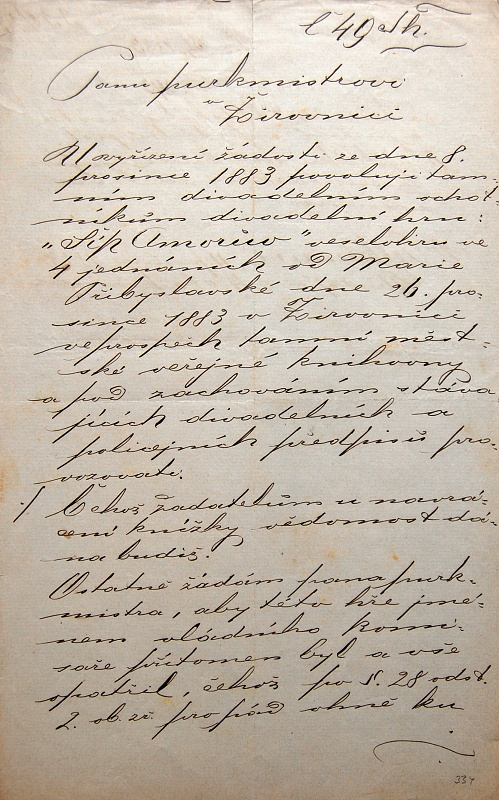 č 49 dh.
Panu purkmistrovi
v
Žirovnici
U vyřízení žádosti ze dne 8.
prosince 1883 povoluji tam-
ním divadelním ochot-
níkům divadelní hru:
„Šíp Amorův" veselohru ve
4 jednáních od Marie
Přibyslavské dne 26. pro-
since 1883 v Žirovnici
ve prospěch tamní měst-
ské veřejné knihovny
a pod zachováním stáva
jících divadelních a
policejních předpisů pro-
vozovati.
./ Čehož žadatelům u navrá-
cení knížky vědomost dá-
na budiž.
Ostatně žádám pana purk-
mistra, aby této hře jmé-
nem vládního komi-
saře přítomen byl a vše
opatřil, čehož po §. 28 odst.
2. ob. zř. pro pád ohně ku
337